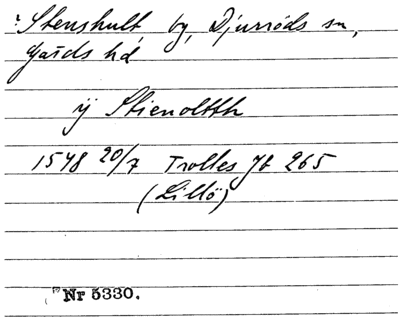 Stenshult, by, Djurröds sn,
Gärds hd
ij Stienoltth
1548 20/7 Trolles Jb 265
(Lillö)
Nr 5330.